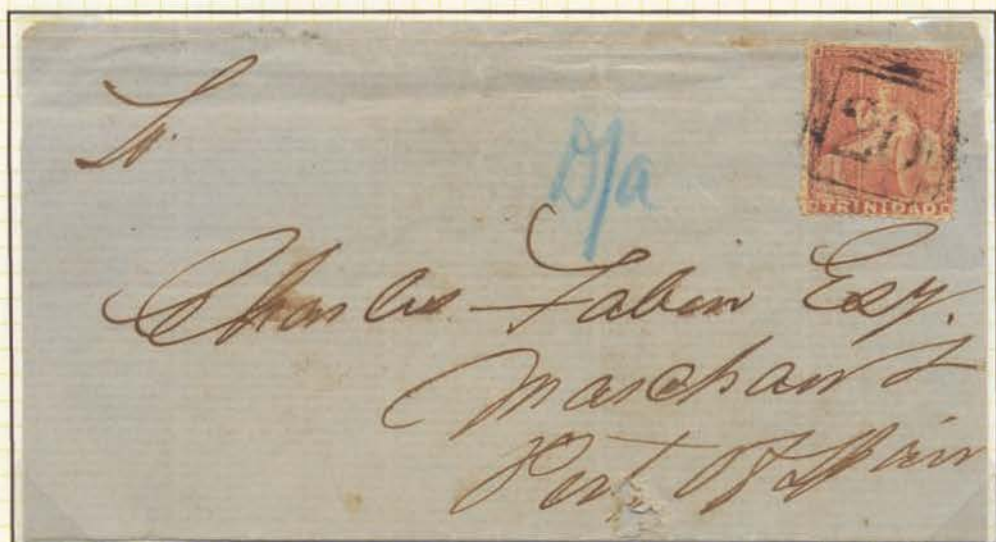 To.
20
TRINIDAD
D/a
Charles Fabien Esq.
Merchant
Port of Spain